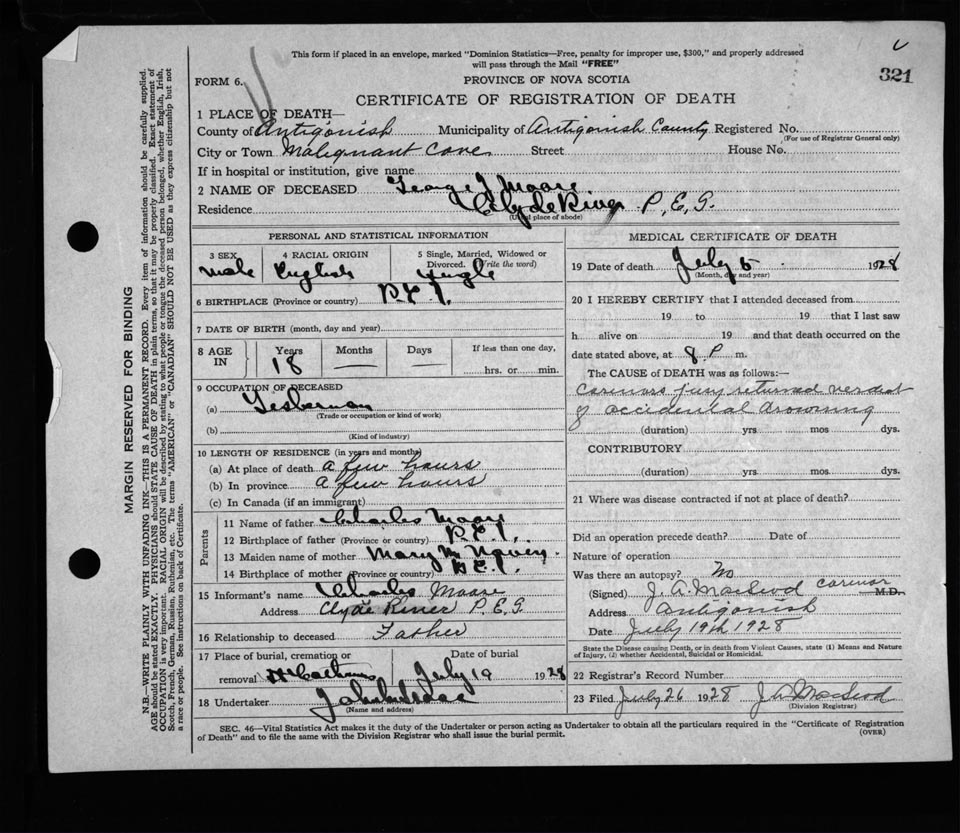 This form if placed in an envelope, marked "Dominion Statistics—Free, penalty for improper use, $300," and properly addressed
will pass through the Mail "FREE"
321
FORM 6.
PROVINCE OF NOVA SCOTIA
CERTIFICATE OF REGISTRATION OF DEATH
1 PLACE OF DEATH—
County of Antigonish Municipality of Antigonish County Registered No.
(For use of Registrar General only)
City or Town Malignant Cove Street House No.
If in hospital or institution, give name
2 NAME OF DECEASED George J Moore
Residence Clyde River P.E.G.
(Usual place of abode)
PERSONAL AND STATISTICAL INFORMATION
3 SEX
male
4 RACIAL ORIGIN
English
5 Single, Married, Widowed or
Divorced. (Write the word)
Single
6 BIRTHPLACE (Province or country) P.E.I.
7 DATE OF BIRTH (month, day and year)
8 AGE IN
Years Months Days
If less than one day,
18 — —
hrs. or min.
9 OCCUPATION OF DECEASED
(a) Fisherman
(Trade or occupation or kind of work)
(b)
(Kind of industry)
10 LENGTH OF RESIDENCE (in years and months)
(a) At place of death a few hours
(b) In province a few hours
(c) In Canada (if an immigrant)
Parents
11 Name of father Charles Moore
12 Birthplace of father (Province or country) P.E.I.
13 Maiden name of mother Mary M
14 Birthplace of mother (Province or country) P.E.I.
15 Informant's name Charles Moore
Address Clyde River P.E.G.
16 Relationship to deceased Father
17 Place of burial, cremation or
removal
Date of burial
July 19 1928
18 Undertaker
(Name and address)
MEDICAL CERTIFICATE OF DEATH
19 Date of death July 5 1928
(Month, day and year)
20 I HEREBY CERTIFY that I attended deceased from
19 to 19 that I last saw
h alive on 19 and that death occurred on the
date stated above, at 8 P. m.
The CAUSE of DEATH was as follows:—
Coroners jury returned verdict
of accidental drowning
(duration) yrs mos dys.
CONTRIBUTORY
(duration) yrs mos dys.
21 Where was disease contracted if not at place of death?
Did an operation precede death? Date of
Nature of operation
Was there an autopsy? No
(Signed) J. A. MacLeod Coroner M.D.
Address Antigonish
Date July 19th 1928
State the Disease causing Death, or in death from Violent Causes, state (1) Means and Nature
of Injury, (2) whether Accidental, Suicidal or Homicidal.
22 Registrar's Record Number
23 Filed July 26 1928 J.A. MacLeod
(Division Registrar)
SEC. 46—Vital Statistics Act makes it the duty of the Undertaker or person acting as Undertaker to obtain all the particulars required in the "Certificate of Registration
of Death" and to file the same with the Division Registrar who shall issue the burial permit.
(OVER)
MARGIN RESERVED FOR BINDING
N.B.—WRITE PLAINLY WITH UNFADING INK—THIS IS A PERMANENT RECORD. Every item of information should be carefully supplied.
AGE should be stated EXACTLY. PHYSICIANS should STATE CAUSE OF DEATH in plain terms, so that it may be properly classified. Exact statement of
OCCUPATION is very important. RACIAL ORIGIN will be described by stating to what people or tongue the deceased person belonged, whether English, Irish,
Scotch, French, German, Russian, Ruthenian, etc. The terms "AMERICAN" or "CANADIAN" SHOULD NOT BE USED as they express citizenship but not
a race or people. See instructions on back of Certificate.